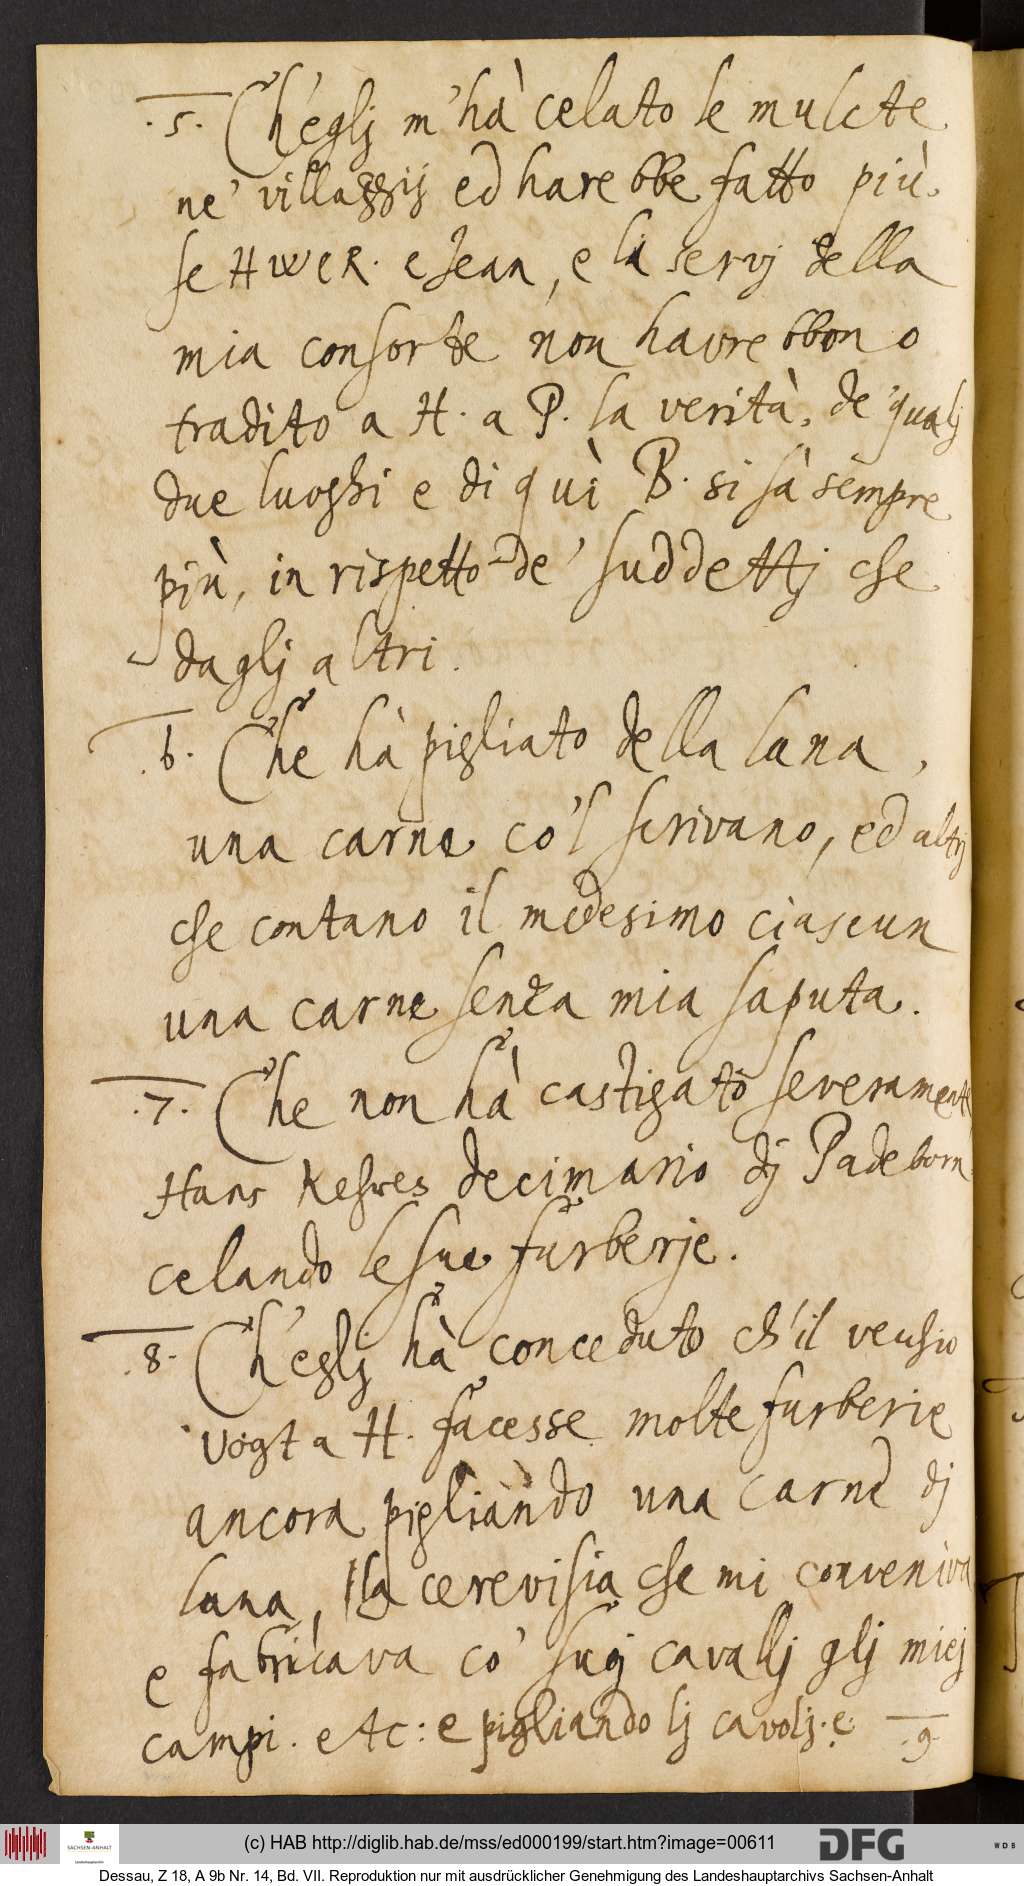 .5. Ch'eglj m'hà celato le mulcte
ne' villaggij ed harebbe fatto più.
se H WER. e Jean, e li servj della
mia consorte non havrebbono
tradito a H. a P. la verità, de' qualj
due luoghi e di quì B. si sà sempre
più, in rispetto de' suddettj che
daglj altri.
.6. Che hà pigliato della lana,
una carne co'l scrivano, ed altrj
che contano il medesimo ciascun
una carne senza mia saputa.
.7. Che non hà castigato severamente
Hans decimario dj Padeborn
celando le sue furberje.
.8. Ch'eglj hà conceduto ch'il
Vogt a H. facesse molte furberie
ancora pigliando una carne dj
lana, la cerevisia che mi conveniva
e fabricava co' suoj cavallj glj miej
campi. etc: e pigliando lj cavolj. e
.9.
(c) HAB http://diglib.hab.de/mss/ed000199/start.htm?image=00611
SACHSEN-ANHALT
DFG
WDB
Dessau, Z 18, A 9b Nr. 14, Bd. VII. Reproduktion nur mit ausdrücklicher Genehmigung des Landeshauptarchivs Sachsen-Anhalt